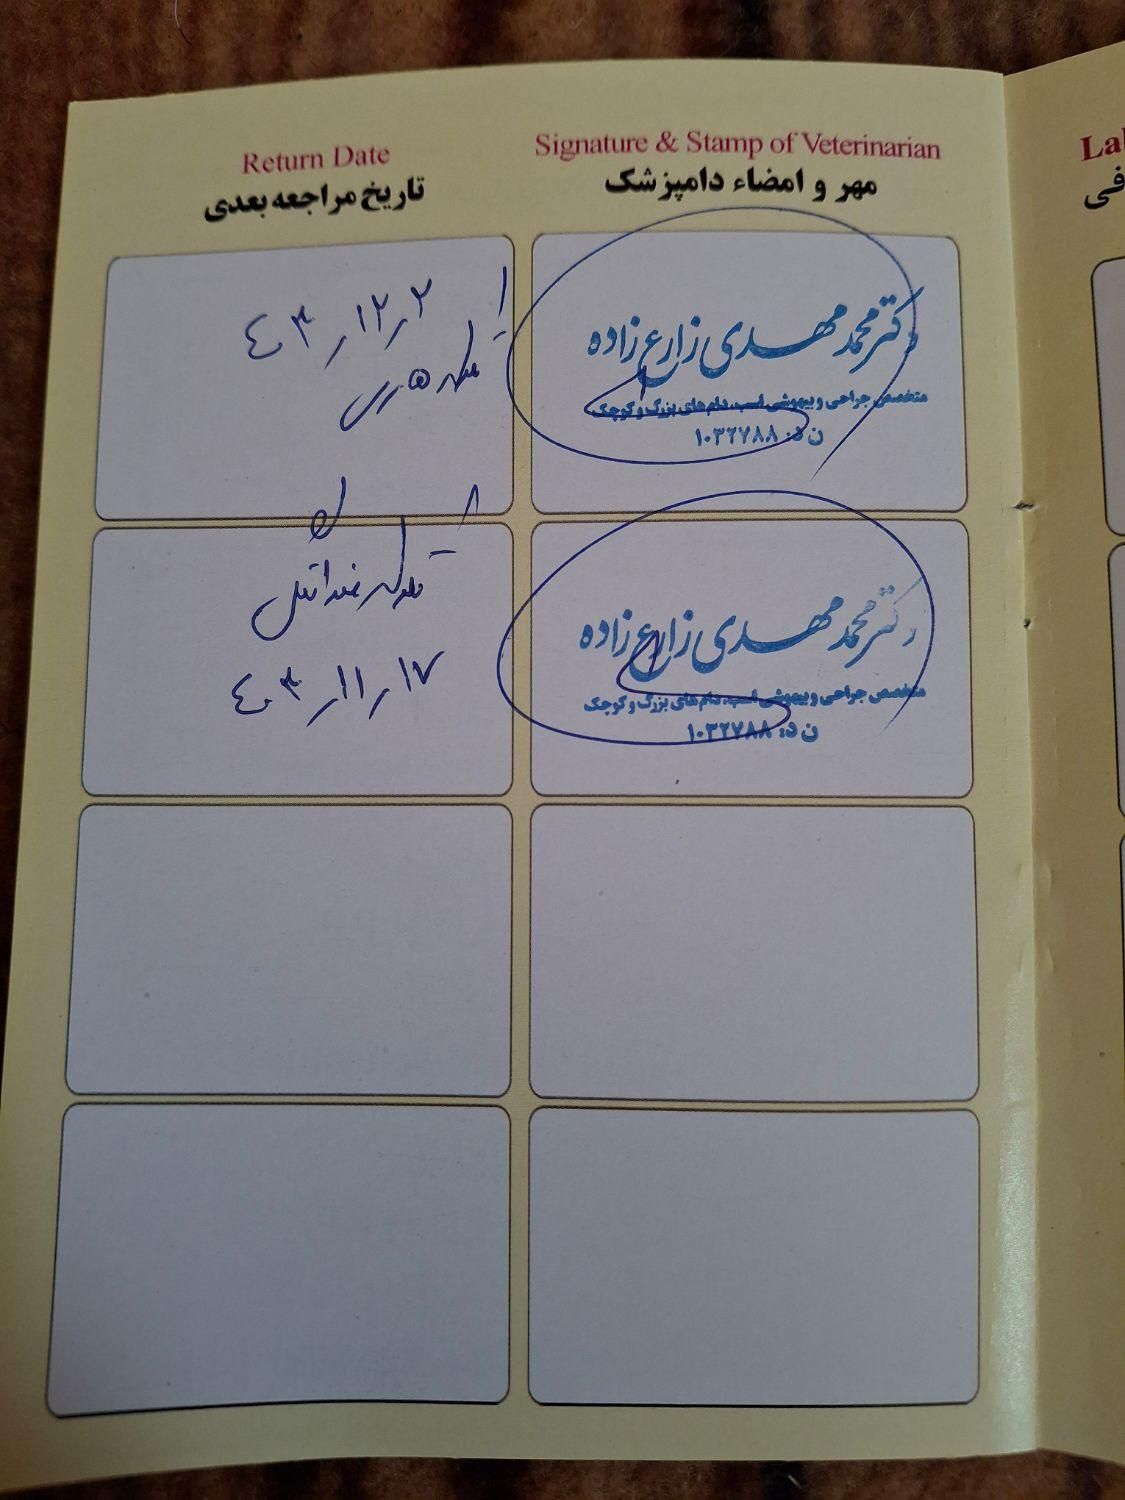 Return Date
تاریخ مراجعه بعدی
Signature & Stamp of Veterinarian
مهر و امضاء دامپزشک
۴۰۳٫۱۲٫۲
هاری
دکتر محمد مهدی زارع زاده
متخصص جراحی و بیهوشی اسب، دام‌های بزرگ و کوچک
ن د: ۱۰۳۲۷۸۸
ضد انگل
۴۰۳٫۱۱٫۱۷
دکتر محمد مهدی زارع زاده
متخصص جراحی و بیهوشی اسب، دام‌های بزرگ و کوچک
ن د: ۱۰۳۲۷۸۸